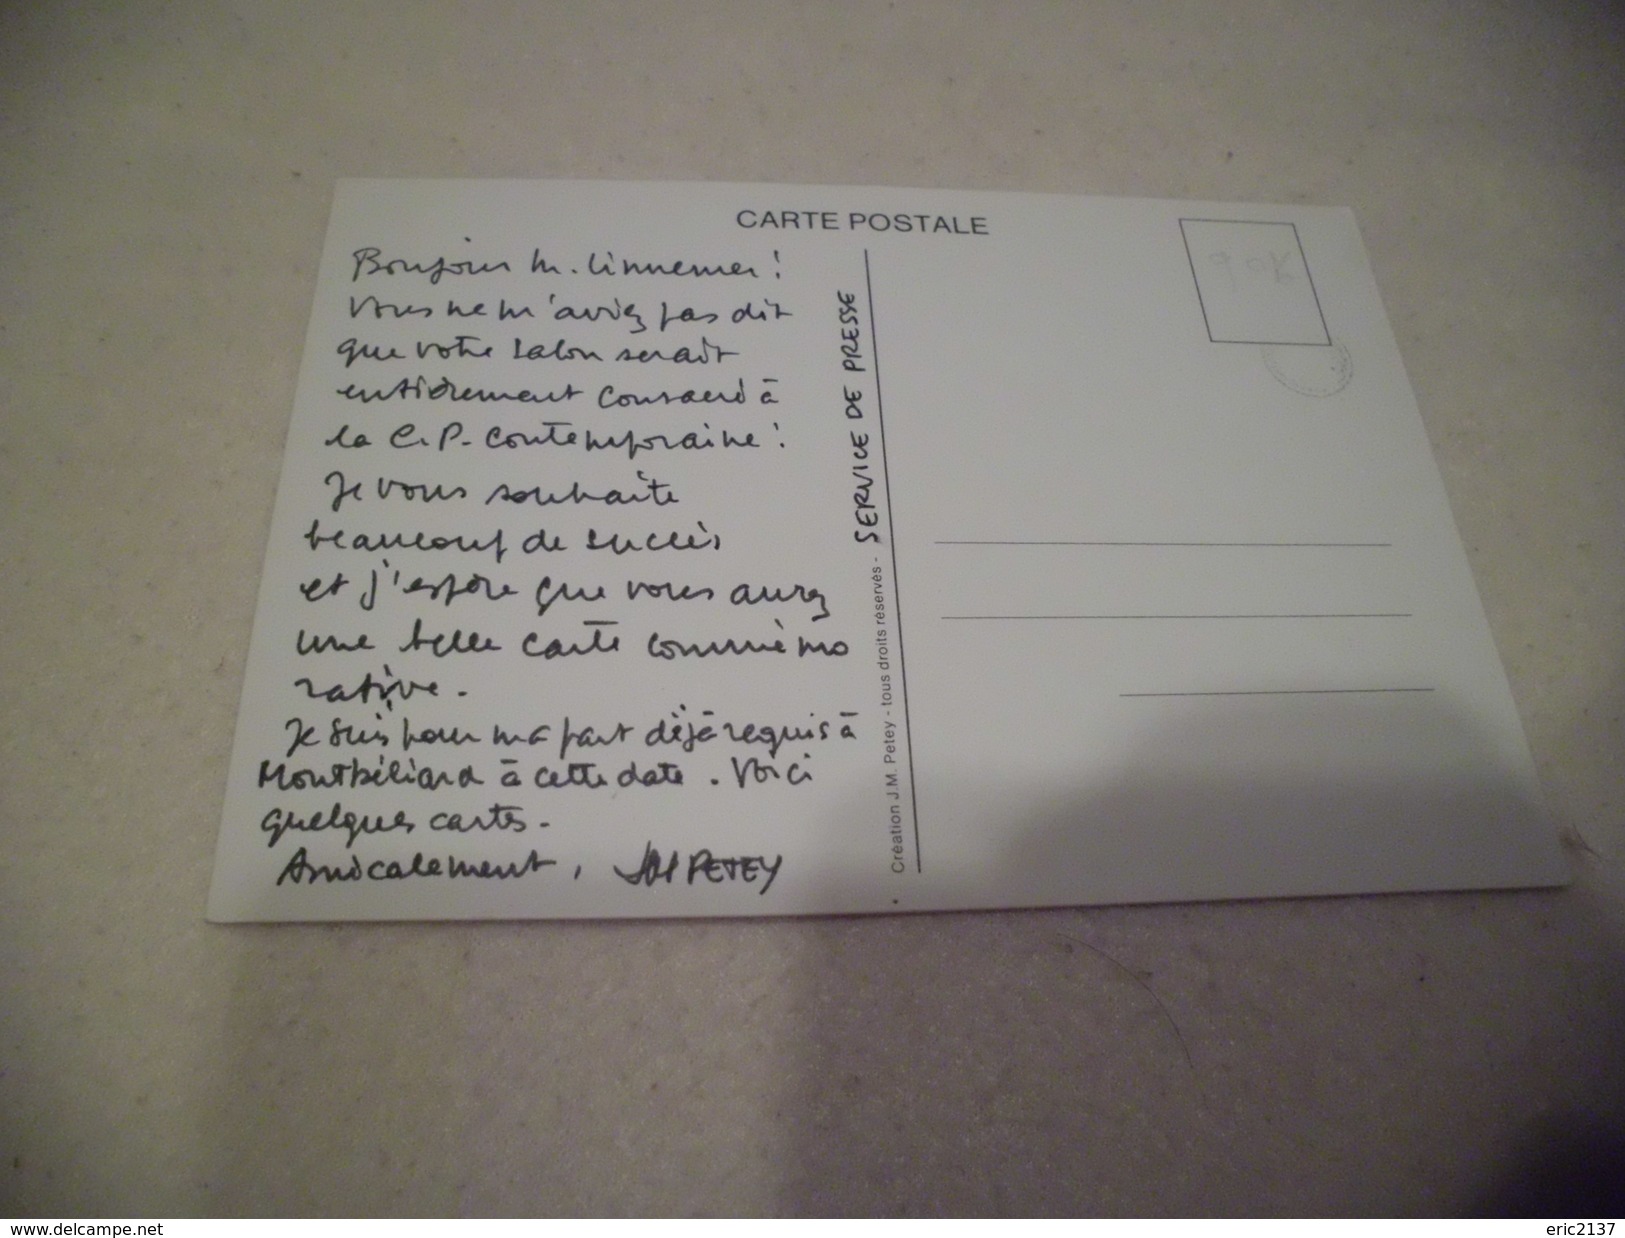 CARTE POSTALE
Bonjour M. Linnemer !
Vous ne m'aviez pas dit
que votre salon serait
entièrement consacré à
la C.P. contemporaine !
Je vous souhaite
beaucoup de succès
et j'espère que vous aurez
une belle carte commémo
rative.
Je suis pour ma part déjà requis à
Montbéliard à cette date. Voici
quelques cartes.
Amicalement, JM PETEY
Création J.M. Petey - tous droits réservés - SERVICE DE PRESSE
www.delcampe.net
eric2137